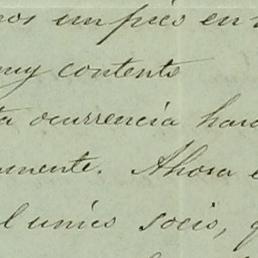 nos un pies en
muy contents
ta ocurrencia hara
mente. Ahora e
l unics socio, q